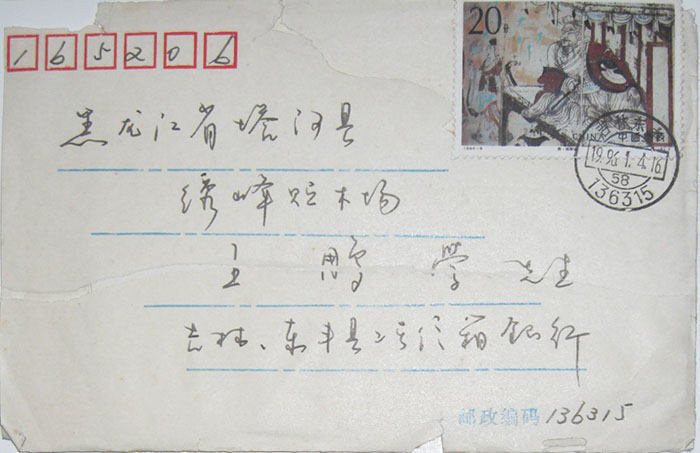 165206
20分
CHINA 中国邮政
吉林东丰
1996.1.4.16
58
136315
黑龙江省塔河县
绣峰贮木场
王鹏学 先生
吉林、东丰县2号信箱 銀行
邮政编码 136315